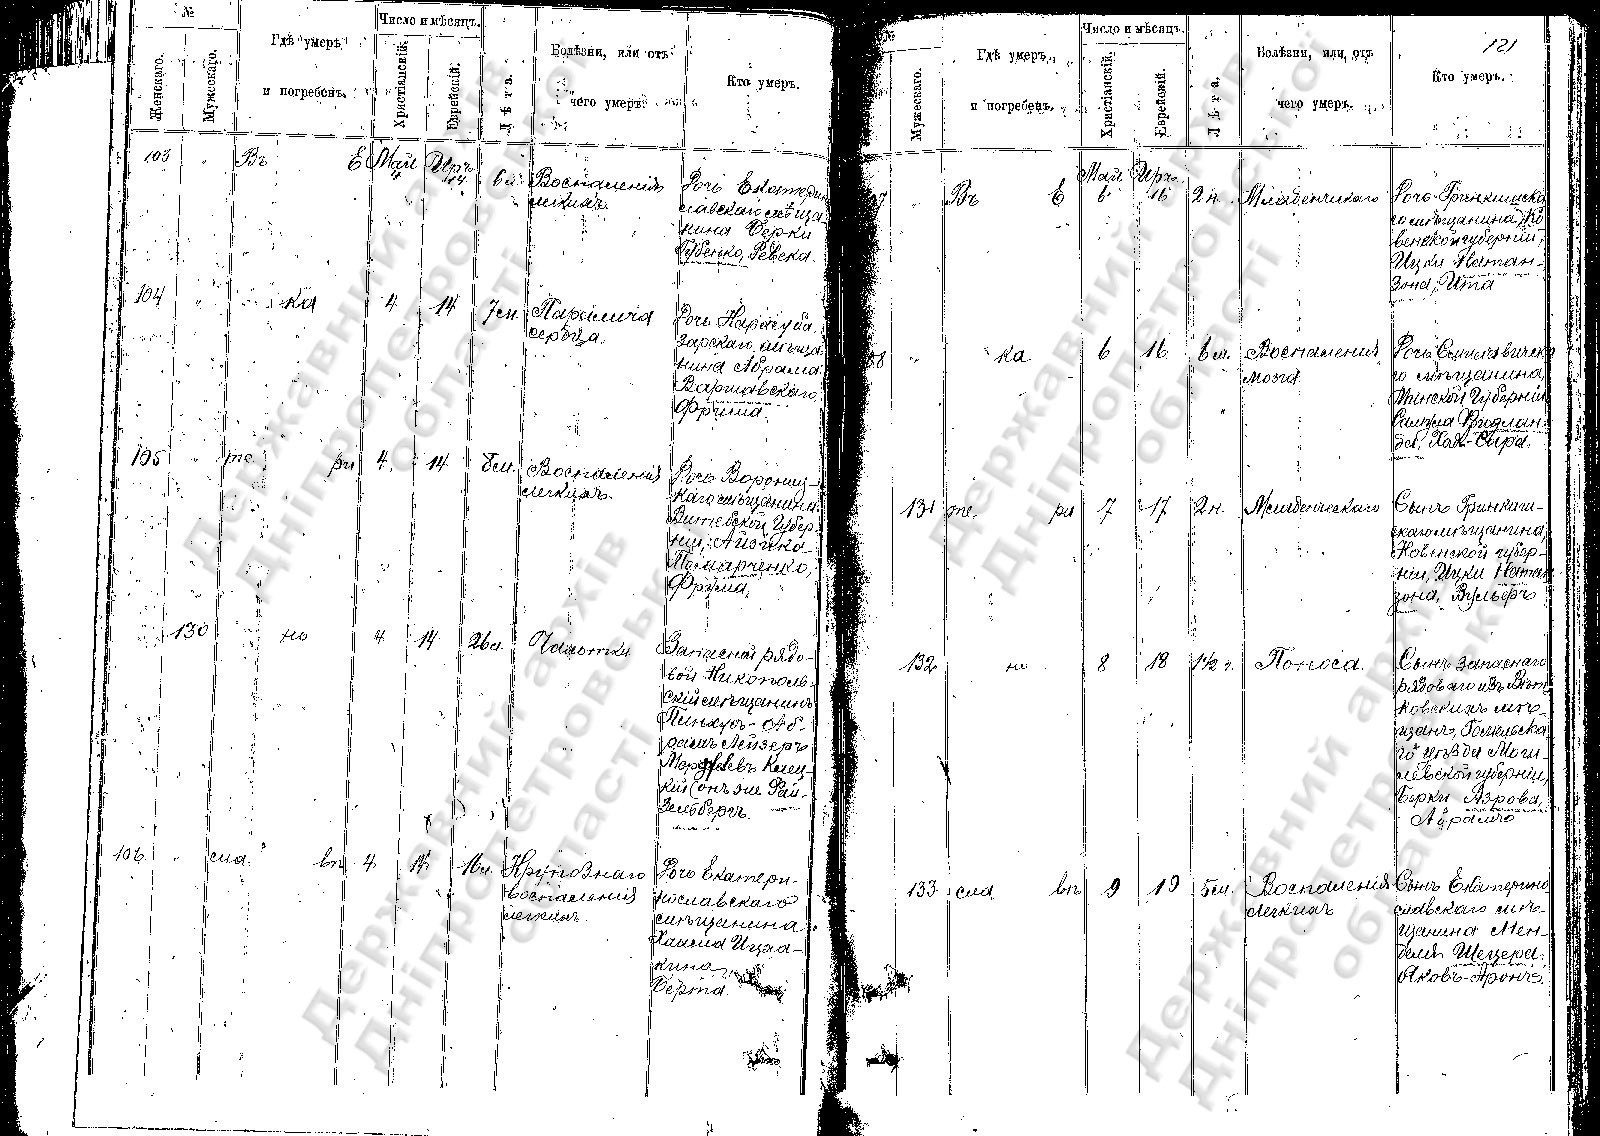 №
Число и мѣсяцъ.
Женскаго.
Мужескаго.
Гдѣ умеръ
и погребенъ.
Христіанскій.
Еврейскій.
Лѣта.
Болѣзни, или отъ
чего умеръ.
Кто умеръ.
103 " Въ Е Май 4 Іяръ 14 6 м. Воспаленія
легкихъ.
Дочь Екатерино
славскаго мѣща
нина Берки
Губенко, Ревека.
104 " ка 4 14 7 м. Паралича
сердца.
Дочь
зарскаго мѣща
нина Абрама
Варшавскаго,
Фрума.
105 те ри 4 14 5 м. Воспаленія
легкихъ.
Дочь
каго мѣщанина
Витебской Губер-
ніи, Айзика
Фрума.
130 но 4 14 26 л. Чахотки
Запасной рядо-
вой Никополь-
скій мѣщанинъ
Пинхусъ-Аб-
рамъ Лейзеръ
Клец-
кій (онъ же Рай-
зельбергъ.
106 " сла вѣ 4 14 Крупознаго
воспаленія
легкихъ.
Дочь Екатери-
нославскаго
мѣщанина
Хаима Ицха-
кина
Берта.
121
Число и мѣсяцъ.
Мужескаго.
Гдѣ умеръ
и погребенъ.
Христіанскій.
Еврейскій.
Лѣта.
Болѣзни, или отъ
чего умеръ.
Кто умеръ.
07 " Въ Е Май 6 Іяръ 16 2 н. Младенческаго
Дочь Гринкишска
го мѣщанина, Ко
венской губерніи,
Ицки Натан-
зона, Ита
08 " ка 6 16 6 м. Воспаленія
мозга.
Дочь
го мѣщанина,
Минской Губерніи
Самуила Фридлян-
да, Хая-Сира.
131 те ри 7 17 2 н. Младенческаго
Сынъ Гринкиш-
скаго мѣщанина,
Ковенской губер-
ніи, Ицки Натан
зона, Вульфъ
132 но 8 18 1½ г. Поноса.
Сынъ запаснаго
рядоваго изъ Вѣт
ковскихъ мѣ-
щанъ, Гомельска
го уѣзда Моги-
левской губерніи,
Берки Азрова,
Абрамъ
133 сла вѣ 9 19 5 м. Воспаленія
легкихъ
Сынъ Екатерино
славскаго мѣ-
щанина Мен-
деля Шецера,
Яковъ-Аронъ.
Державний архів
Дніпропетровської
області
Державний архів
Дніпропетровської
області
Державний архів
Дніпропетровської
області
Державний архів
Дніпропетровської
області